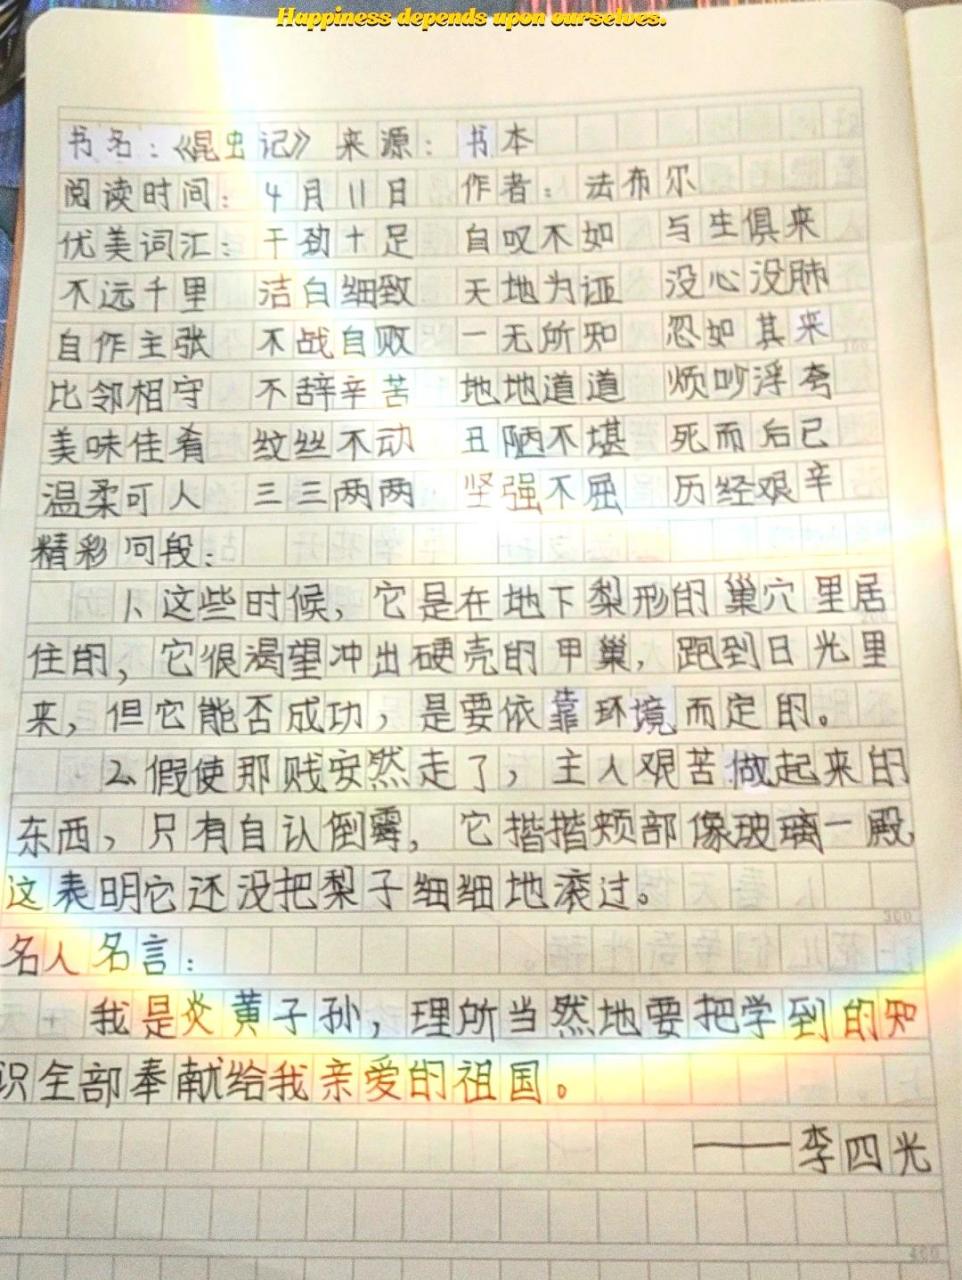 Happiness depends upon ourselves.
书名：《昆虫记》 来源： 书本
阅读时间： 4月11日 作者：法布尔
优美词汇：干劲十足 自叹不如 与生俱来
不远千里 洁白细致 天地为证 没心没肺
自作主张 不战自败 一无所知 忽如其来
比邻相守 不辞辛苦 地地道道 烦吵浮夸
美味佳肴 纹丝不动 丑陋不堪 死而后已
温柔可人 三三两两 坚强不屈 历经艰辛
精彩问段：
1、这些时候，它是在地下梨形的巢穴里居
住的，它很渴望冲出硬壳的甲巢，跑到日光里
来，但它能否成功，是要依靠环境而定的。
2、假使那贱安然走了，主人艰苦做起来的
东西，只有自认倒霉，它揩揩颊部像玻璃一殿，
这表明它还没把梨子细细地滚过。
名人名言：
我是炎黄子孙，理所当然地要把学到的知
识全部奉献给我亲爱的祖国。
——李四光
300
400